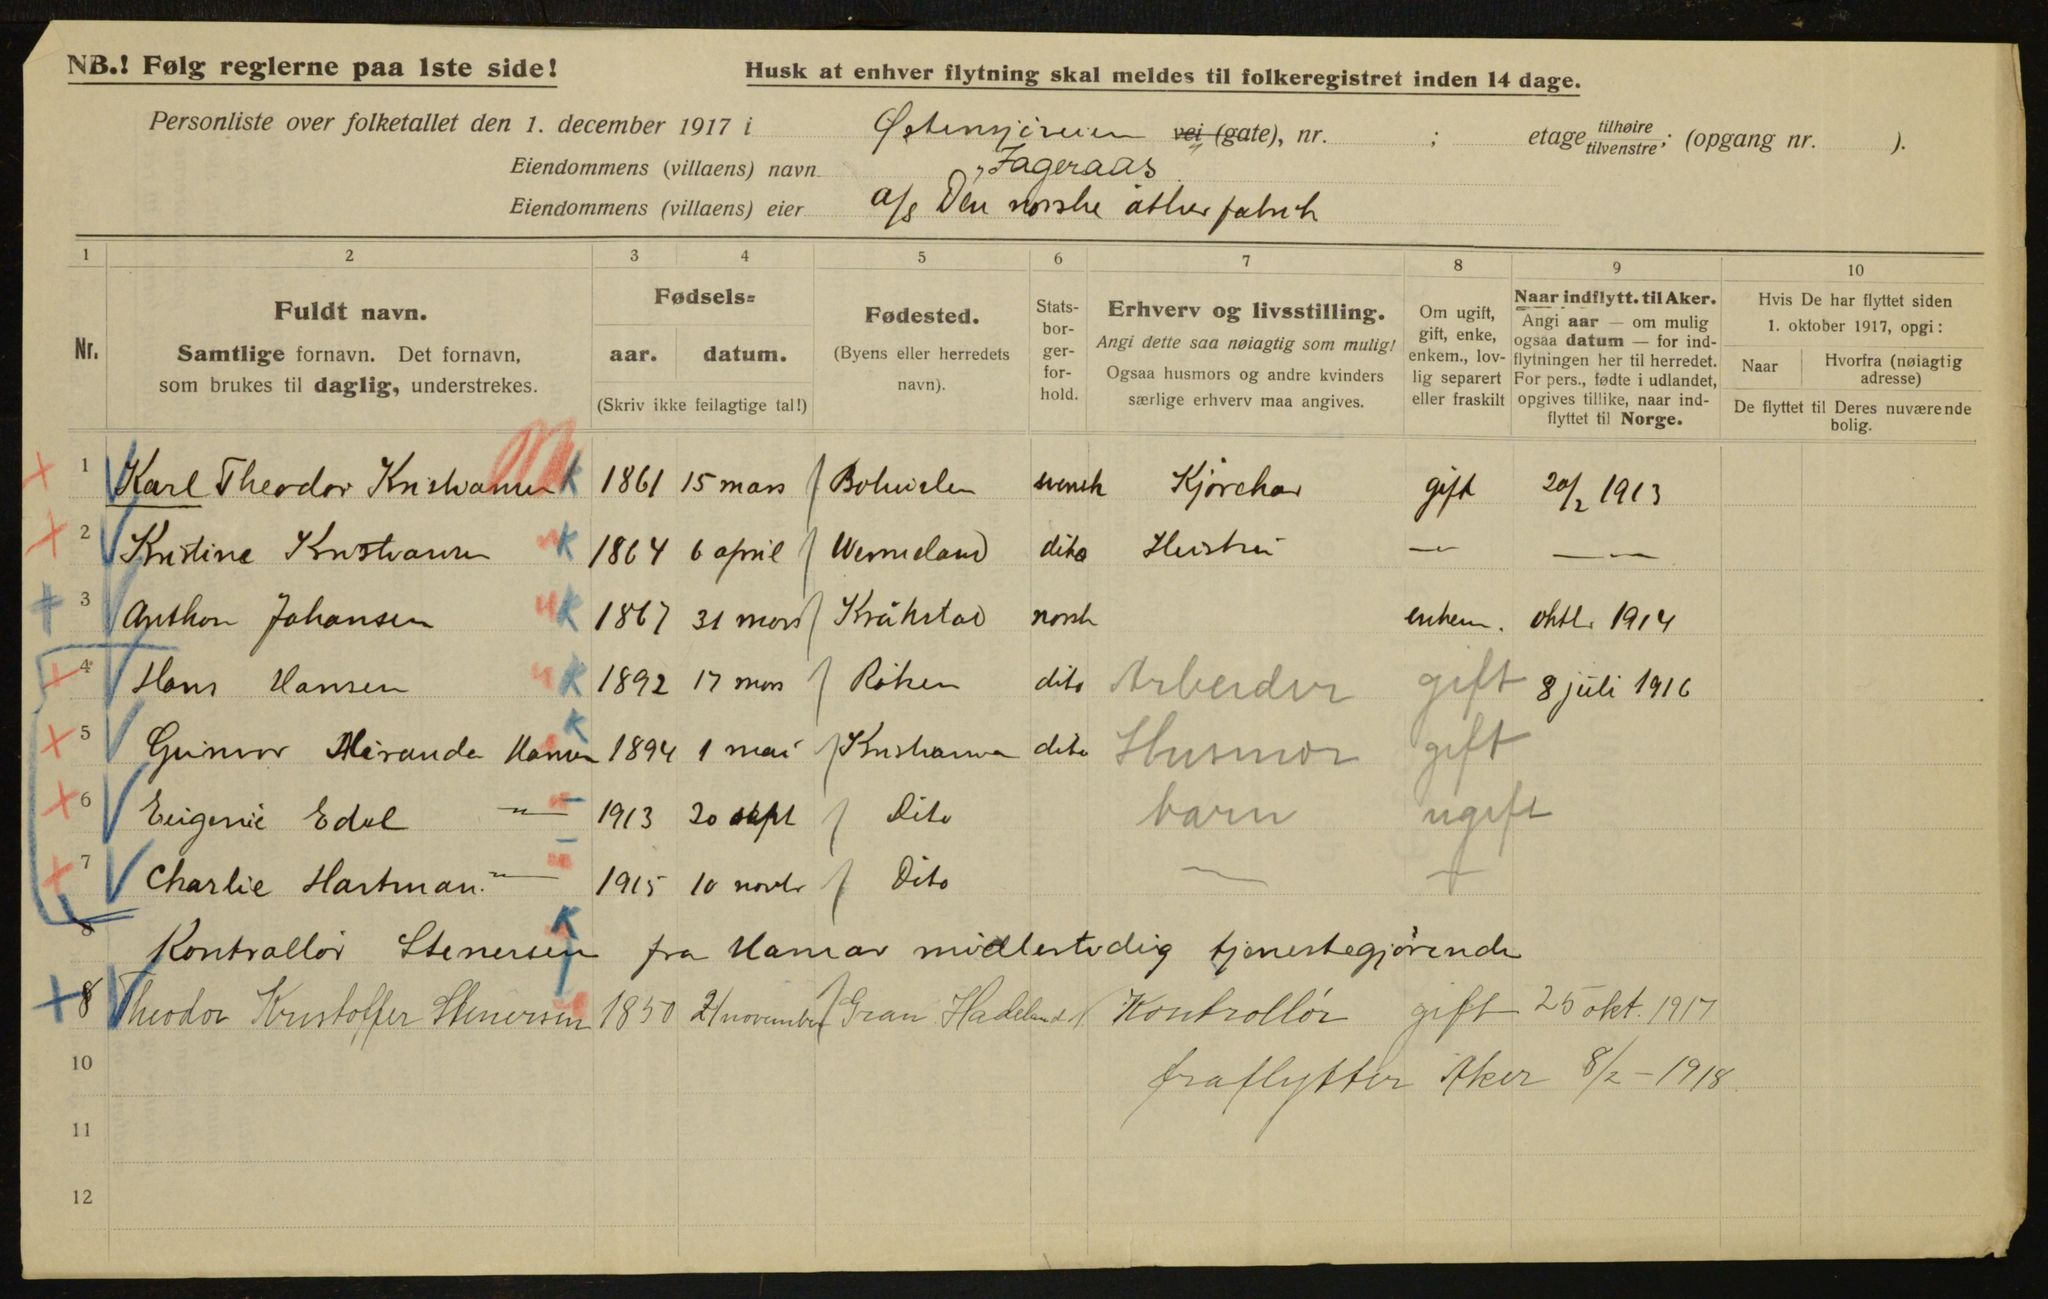 NB.! Følg reglerne paa 1ste side!
Husk at enhver flytning skal meldes til folkeregistret inden 14 dage.
Personliste over folketallet den 1. december 1917 i Østensjøveien vei (gate), nr. ; etage tilhøire tilvenstre; (opgang nr. ).
Eiendommens (villaens) navn Fageraas
Eiendommens (villaens) eier a/s Den norske æther fabrik
1 2 3 4 5 6 7 8 9 10
Nr.
Fuldt navn.
Samtlige fornavn. Det fornavn,
som brukes til daglig, understrekes.
Fødsels=
aar. datum.
(Skriv ikke feilagtige tal!)
Fødested.
(Byens eller herredets
navn).
Stats-
bor-
ger-
for-
hold.
Erhverv og livsstilling.
Angi dette saa nøiagtig som mulig!
Ogsaa husmors og andre kvinders
særlige erhverv maa angives.
Om ugift,
gift, enke,
enkem., lov-
lig separert
eller fraskilt
Naar indflytt. til Aker.
Angi aar — om mulig
ogsaa datum — for ind-
flytningen her til herredet.
For pers., fødte i udlandet,
opgives tillike, naar ind-
flyttet til Norge.
Hvis De har flyttet siden
1. oktober 1917, opgi:
Naar
Hvorfra (nøiagtig
adresse)
De flyttet til Deres nuværende
bolig.
1 Karl Theodor Kristiansen K 1861 15 mars Bohuslen svensk Kjørekar gift 20/2 1913
2 Kristine Kristiansen K 1864 6 april Wermeland dito Hustru — —
3 Anthon Johansen K 1867 31 mars Kråkstad norsk enkem. oktbr 1914
4 Hans Hansen K 1892 17 mars Röken dito Arbeider gift 8 juli 1916
5 Gunvor Miranda Hansen K 1894 1 mai Kristiania dito Husmor gift
6 Eugenie Edel —"— 1913 20 sept Dito barn ugift
7 Charlie Hartman —"— 1915 10 novbr Dito — —
8 Kontrollör Stenersen K fra Hamar midlertidig tjenestegjörende
8 Theodor Kristoffer Stenersen 1850 21 november Gran Hadeland Kontrollör gift 25 okt. 1917
10 fraflytter Aker 8/2 – 1918
11
12